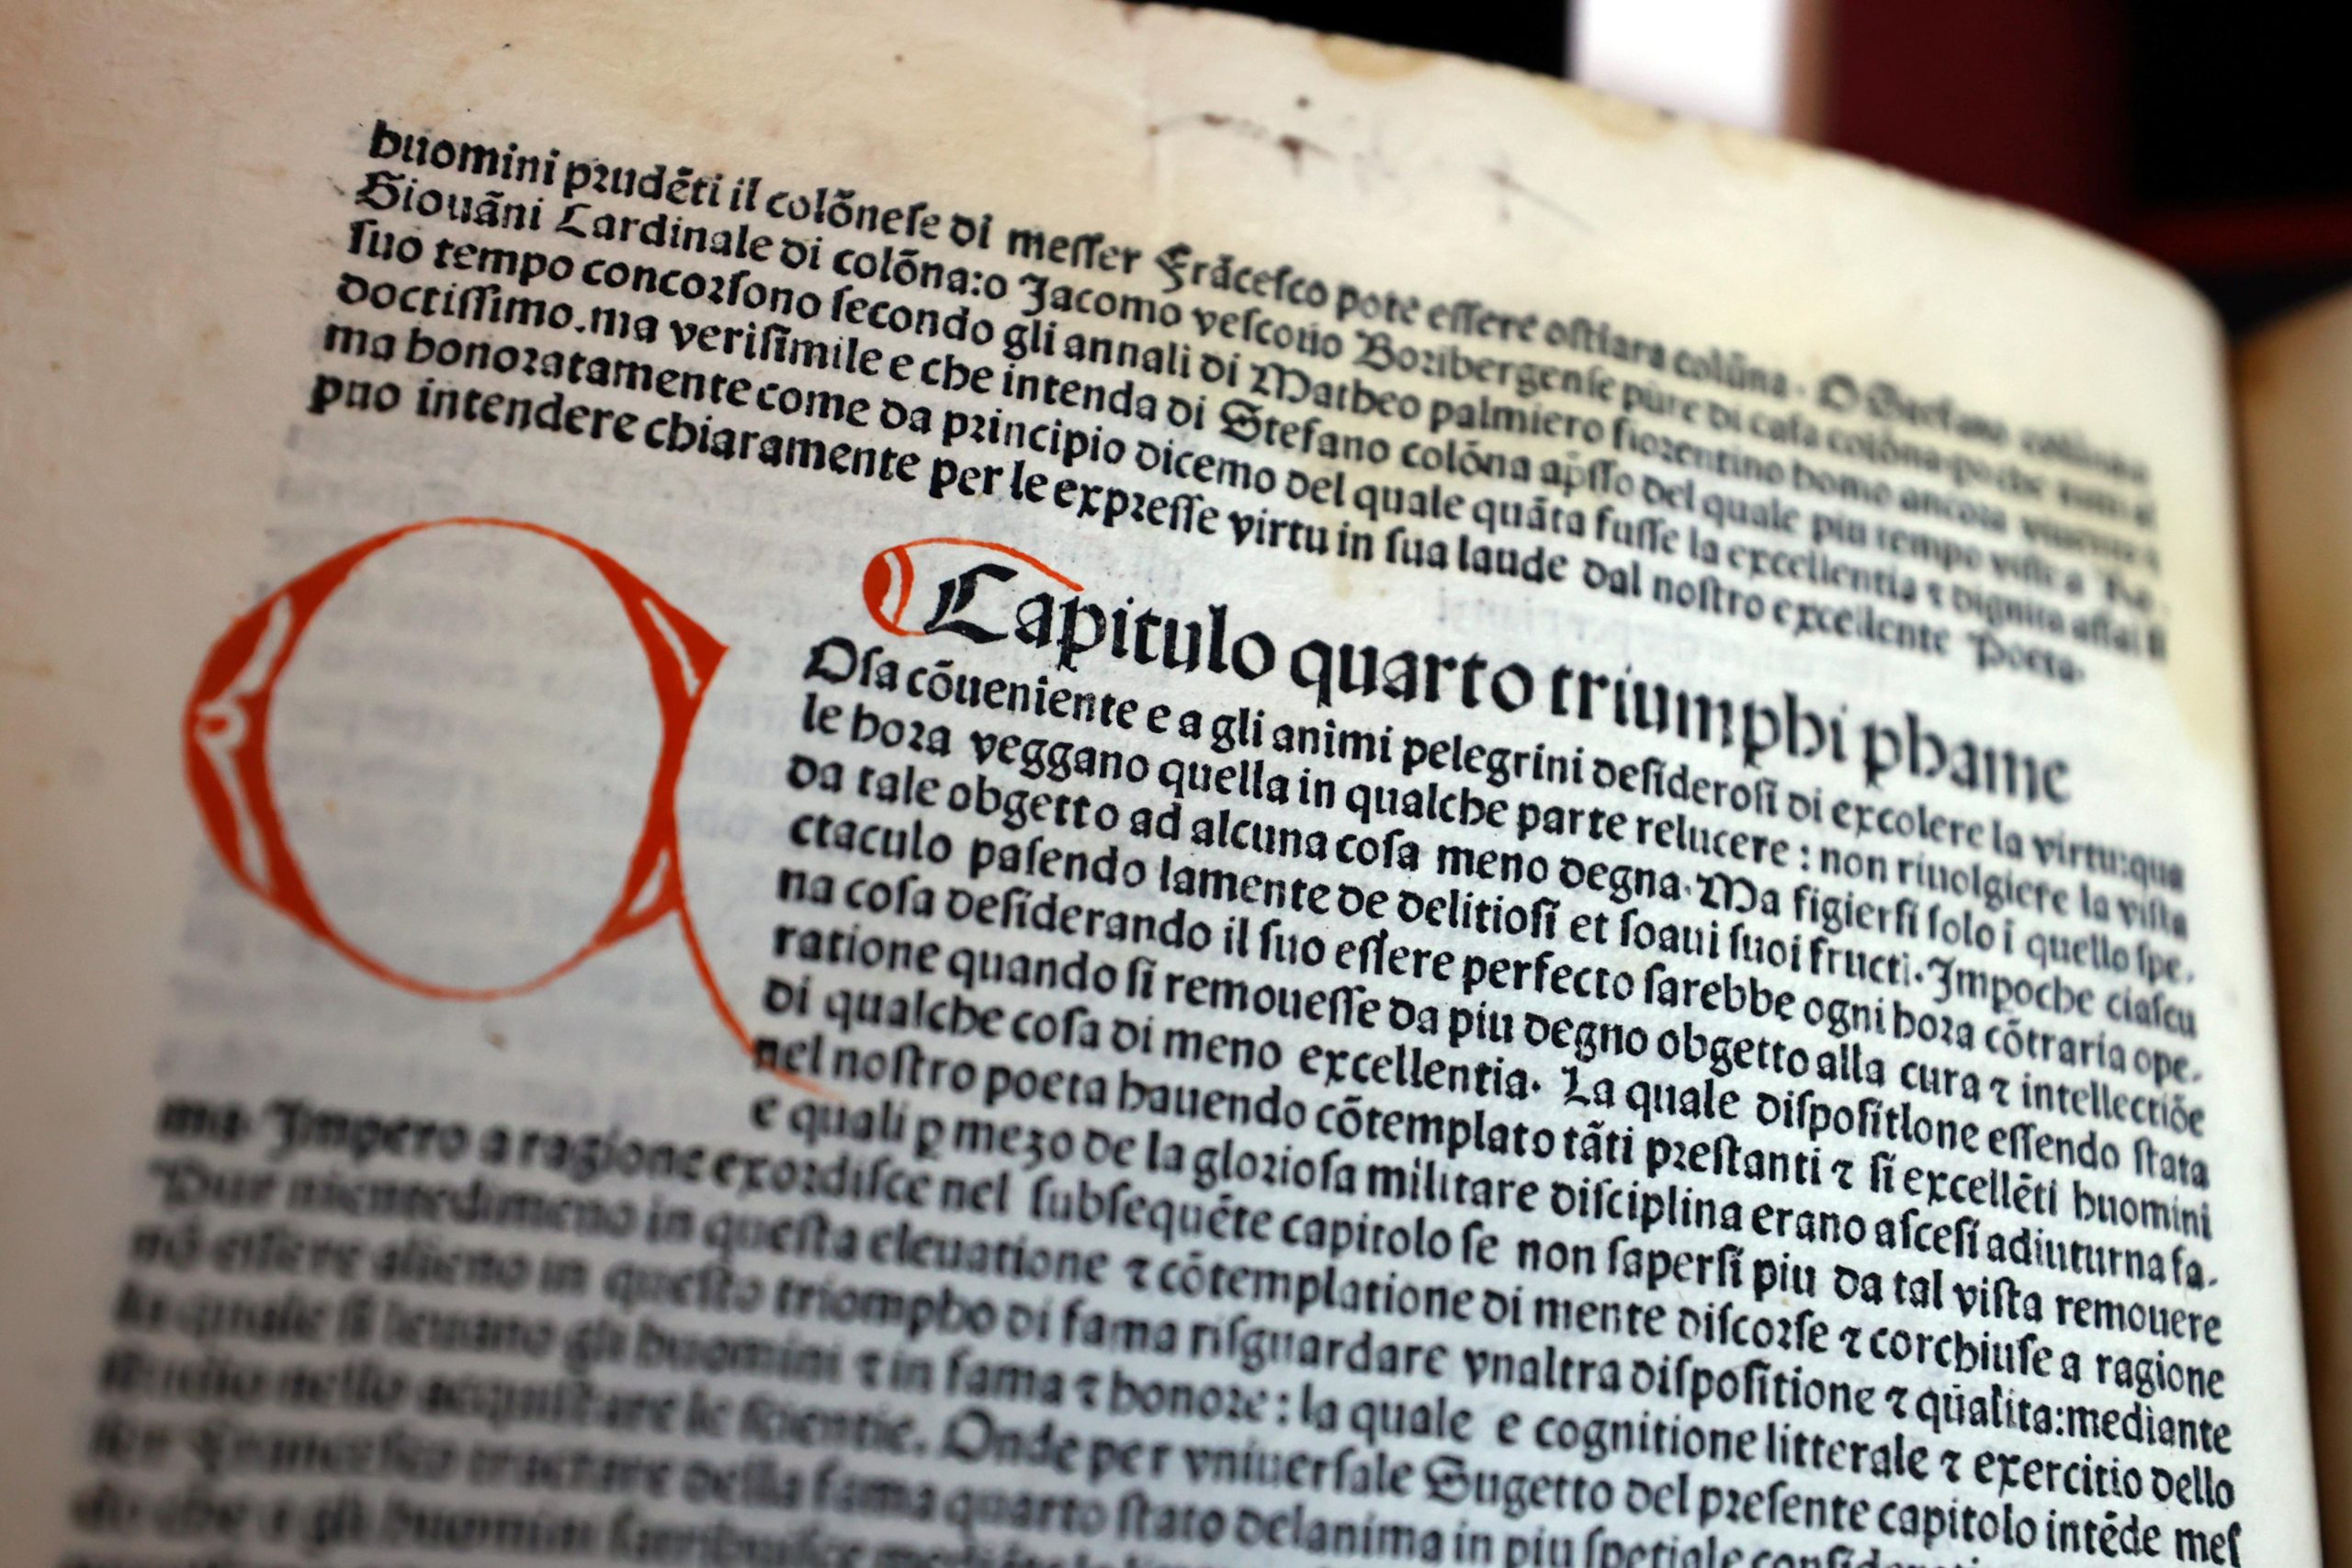 huomini prudẽti il colõneſe di meſſer Frãceſco pote eſſere oſtiara colũna. O Stefano colõna
Giouãni Cardinale di colõna:o Jacomo veſcouo Bozibergenſe pure di caſa colõna
ſuo tempo concorſono ſecondo gli annali di Matheo palmiero fiorentino homo ancora
doctiſſimo.ma veriſimile e che intenda di Stefano colõna apſſo del quale piu tempo viſſe a
ma honoratamente come da principio dicemo del quale quãta fuſſe la excellentia ⁊ dignita aſſai ſi
puo intendere chiaramente per le expreſſe virtu in ſua laude dal noſtro excellente Poeta.
Capitulo quarto triumphi phame
Q
Oſa cõueniente e a gli animi pelegrini deſideroſi di excolere la virtu:qua
le hora veggano quella in qualche parte relucere : non riuolgiere la viſta
da tale obgetto ad alcuna coſa meno degna. Ma figierſi ſolo ĩ quello ſpe.
ctaculo paſendo lamente de delitioſi et ſoaui ſuoi fructi. Impoche ciaſcu
na coſa deſiderando il ſuo eſſere perfecto ſarebbe ogni hora cõtraria ope.
ratione quando ſi remoueſſe da piu degno obgetto alla cura ⁊ intellectiõe
di qualche coſa di meno excellentia. La quale diſpoſitlone eſſendo ſtata
nel noſtro poeta hauendo cõtemplato tãti preſtanti ⁊ ſi excellẽti huomini
e quali ꝑ mezo de la glorioſa militare diſciplina erano aſceſi adiuturna fa.
ma. Impero a ragione exordiſce nel ſubſequẽte capitolo ſe non ſaperſi piu da tal viſta remouere
Pur nientedimeno in queſta eleuatione ⁊ cõtemplatione di mente diſcorſe ⁊ corchiuſe a ragione
nõ eſſere alieno in queſto triompho di fama riſguardare vnaltra diſpoſitione ⁊ qualita:mediante
la quale ſi leuano gli huomini ⁊ in fama ⁊ honore : la quale e cognitione litterale ⁊ exercitio dello
ſtudio nello acquiſtare le ſcientie. Onde per vniuerſale Sugetto del preſente capitolo intẽde meſ
ſer Franceſco tractare della fama quarto ſtato delanima in piu ſpetiale
do che a gli huomini